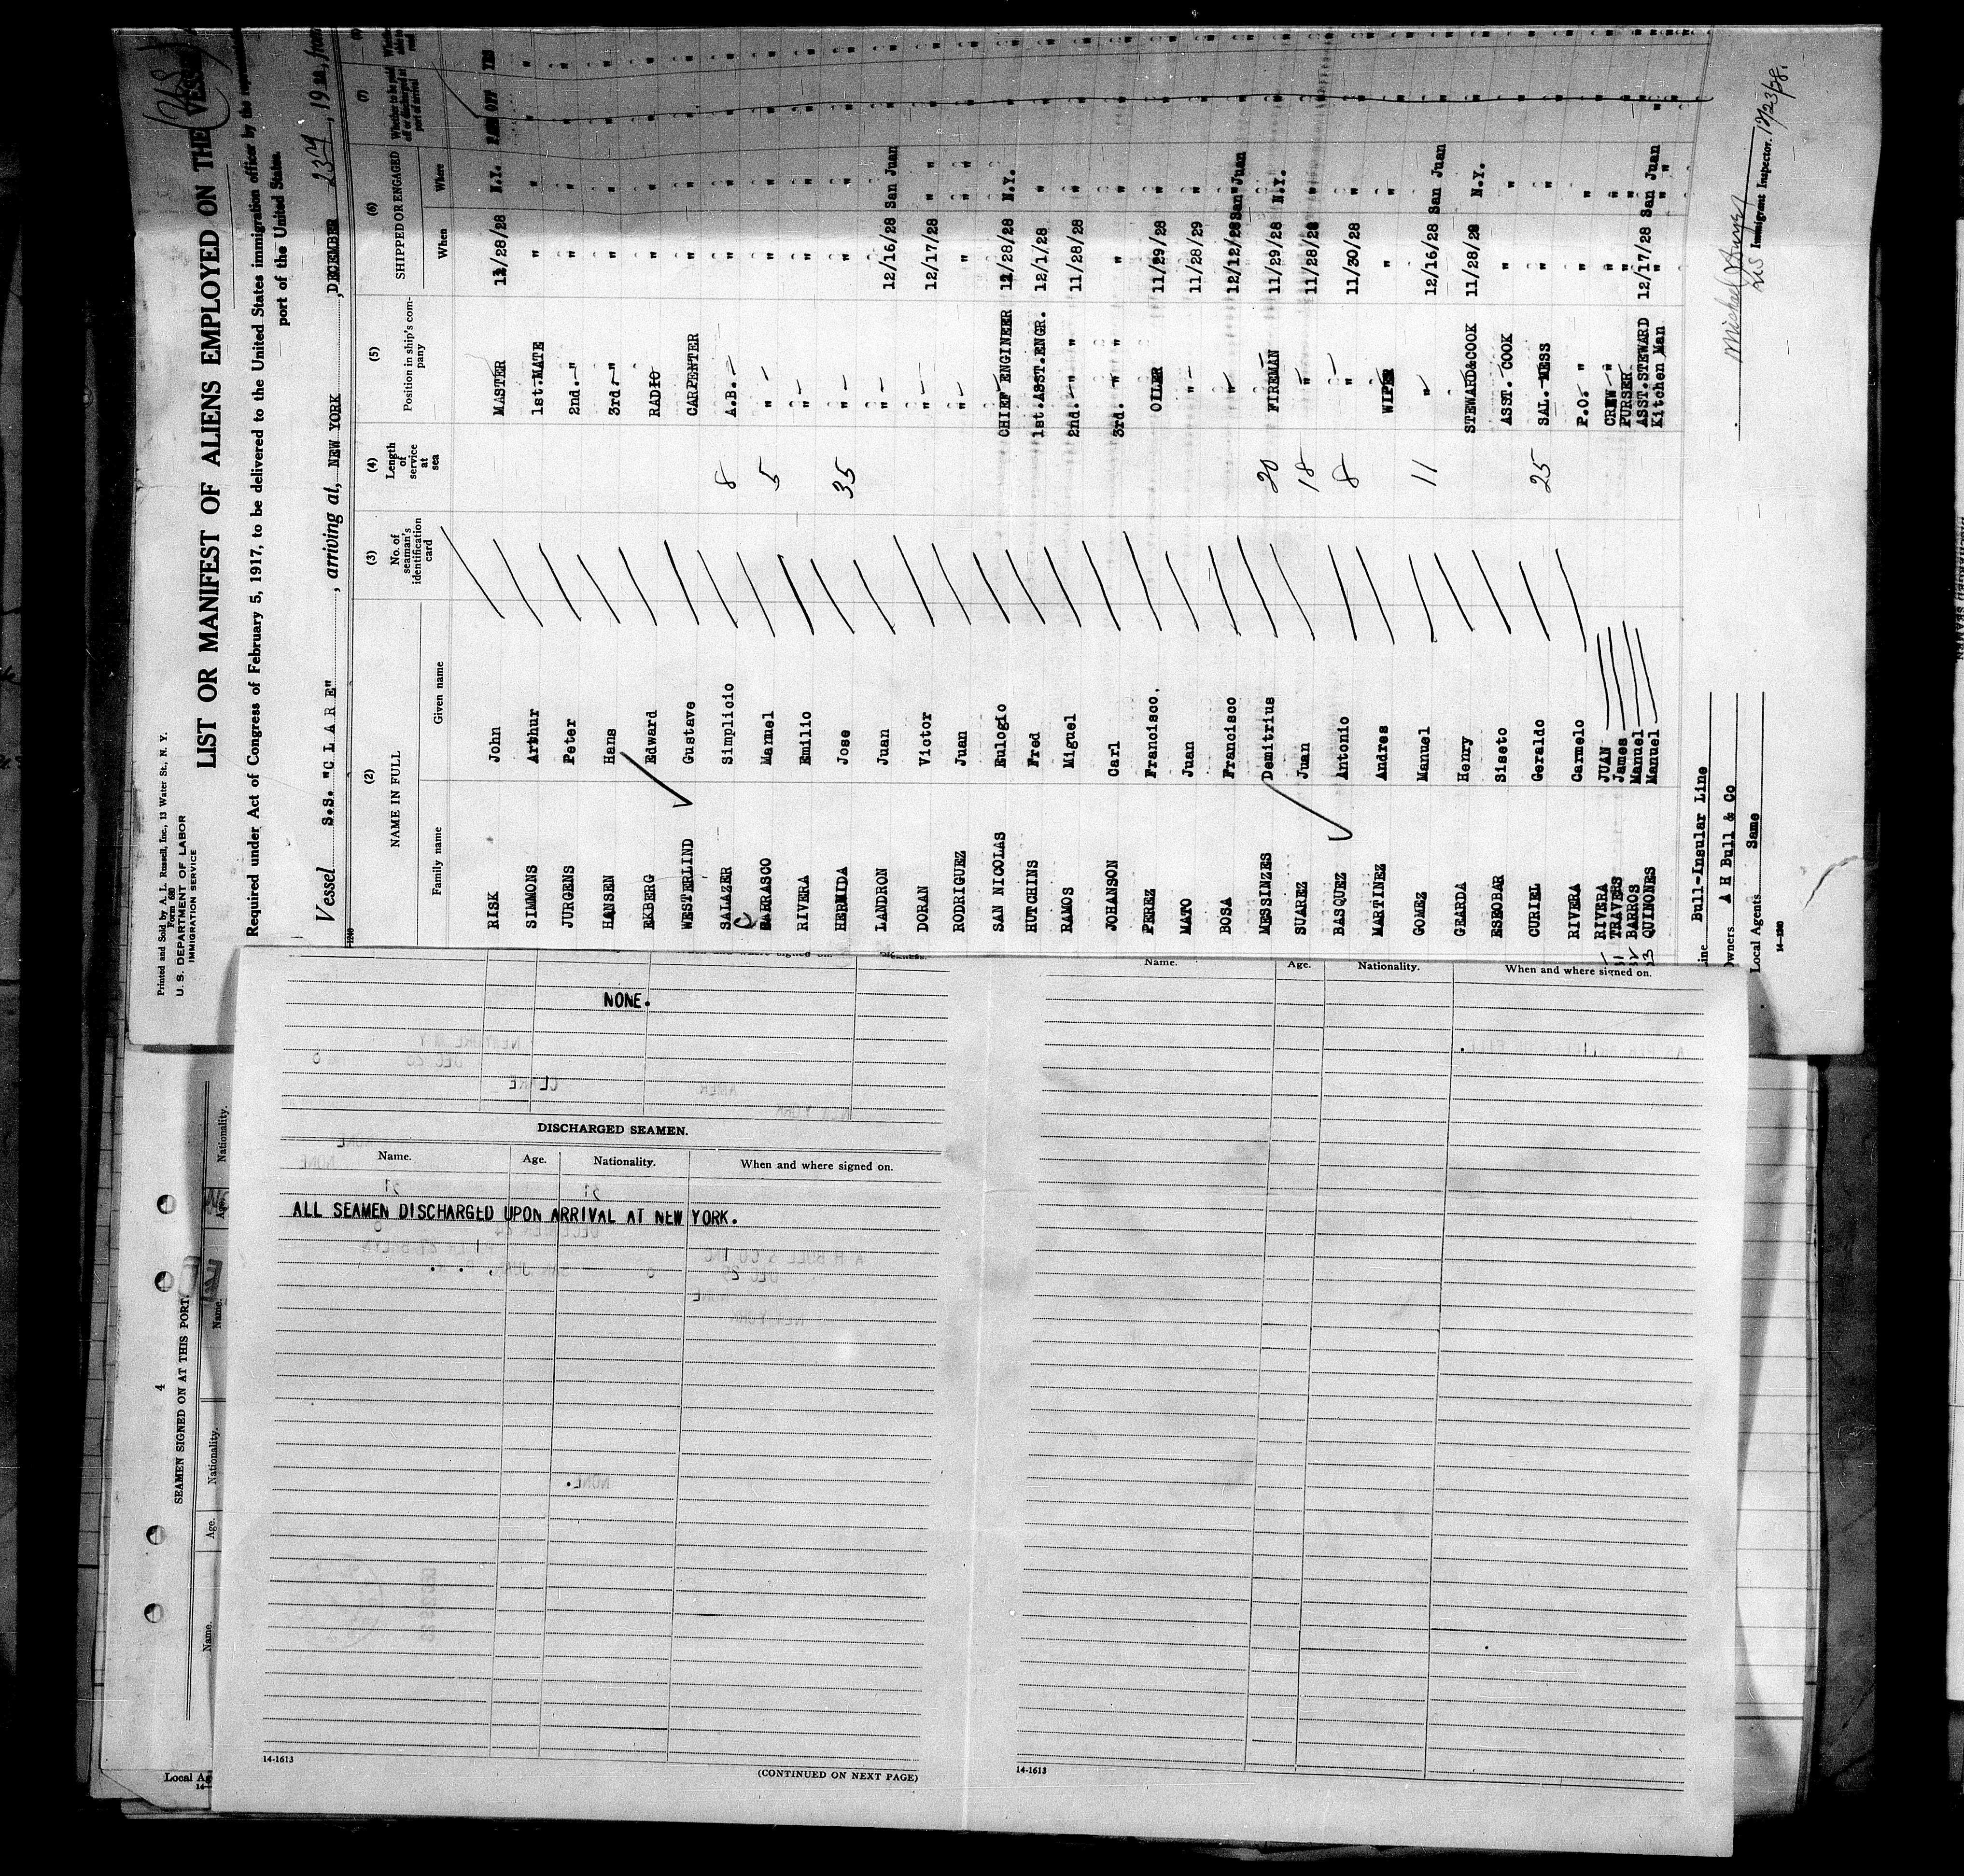 Printed and Sold by A. L. Russell, Inc., 13 Water St., N. Y.
Form 680
U. S. DEPARTMENT OF LABOR
IMMIGRATION SERVICE
LIST OR MANIFEST OF ALIENS EMPLOYED ON THE VESSEL
Required under Act of Congress of February 5, 1917, to be delivered to the United States immigration officer by the
port of the United States.
Vessel S.S. "C L A R E" , arriving at, NEW YORK , DECEMBER 23rd , 19 , from
(2) (3) (4) (5) (6) (7)
NAME IN FULL No. of seaman's identification card Length of service at sea Position in ship's company SHIPPED OR ENGAGED Whether to be paid off or discharged at port of arrival
Family name Given name When Where
RISK John MASTER 11/28/28 N.Y. PAID OFF YES
SIMMONS Arthur 1st.MATE " " " "
JURGENS Peter 2nd. " " " " "
HANSEN Hans 3rd. " " " " "
EKBERG Edward RADIO " " " "
WESTERLIND Gustave CARPENTER " " " "
SALAZER Simplicio 8 A.B. " " " "
CARRASCO Manuel 5 " " " " "
RIVERA Emilio " " " " "
HERMIDA Jose 35 " " " " "
LANDRON Juan " 12/16/28 San Juan " "
DORAN Victor " 12/17/28 " " "
RODRIGUEZ Juan " " " " "
SAN NICOLAS Eulogio CHIEF ENGINEER 11/28/28 N.Y. " "
HUTCHINS Fred 1st.ASST.ENGR. 12/1/28 " " "
RAMOS Miguel 2nd. " " 11/28/28 " " "
JOHANSON Carl 3rd. " " " " " "
PEREZ Francisco. OILER 11/29/28 " " "
MATO Juan " 11/28/29 " " "
BOSA Francisco " 12/12/28 San Juan " "
MESSINZES Demitrius 20 FIREMAN 11/29/28 N.Y. " "
SUAREZ Juan 18 " 11/28/28 " " "
BASQUEZ Antonio 8 " 11/30/28 " " "
MARTINEZ Andres WIPER " " " "
GOMEZ Manuel 11 " 12/16/28 San Juan " "
GEARDA Henry STEWARD&COOK 11/28/28 N.Y. " "
ESEOBAR Sisto ASST. COOK " " " "
CURIEL Geraldo 25 SAL. MESS " " " "
RIVERA Carmelo P.O. " " " " "
RIVERA JUAN CREW " " " " "
TRAVERS James PURSER " " " "
BARROS Manuel ASST.STEWARD 12/17/28 San Juan " "
QUINONES Manuel Kitchen Man " " " "
Bull-Insular Line
Owners A H Bull & Co
Local Agents Same
14-1240
Immigrant Inspector. 12/23/28.
NONE.
DISCHARGED SEAMEN.
Name. Age. Nationality. When and where signed on.
ALL SEAMEN DISCHARGED UPON ARRIVAL AT NEW YORK.
14-1613
(CONTINUED ON NEXT PAGE)
Name. Age. Nationality. When and where signed on.
14-1613
4
SEAMEN SIGNED ON AT THIS PORT
Name. Age. Nationality. Name. Age. Nationality.
Local